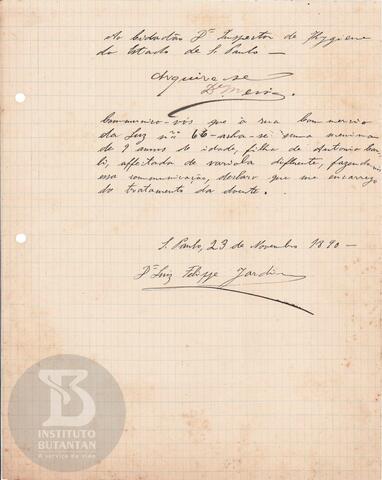 Ao Cidadão Dr Inspector de Hygiene
do Estado de S. Paulo —
Archive-se
Communico-vos que á rua Commercio
da Luz nº 66 acha-se uma menina
de 9 annos de idade, filha de Antonio
affectada de variola,
essa communicação, declaro que me encarrego
do tratamento da doente.
S. Paulo, 23 de Novembro 1890 —
Dr Luiz Felippe Jardim
INSTITUTO
BUTANTAN
A serviço da vida